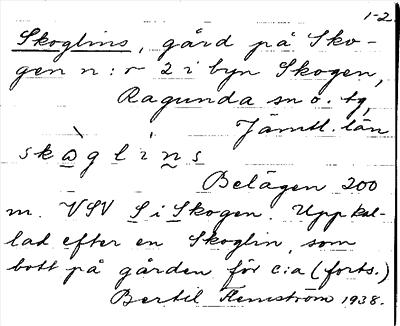 1-2.
Skoglins, gård på Sko-
gen n:r 2 i byn Skogen,
Ragunda sn o. tg,
Jämtl. län
skòglíns
Belägen 200
m. VSV S i Skogen. Uppkal-
lad efter en Skoglin, som
bott på gården för c:a (forts.)
Bertil Flemström 1938.